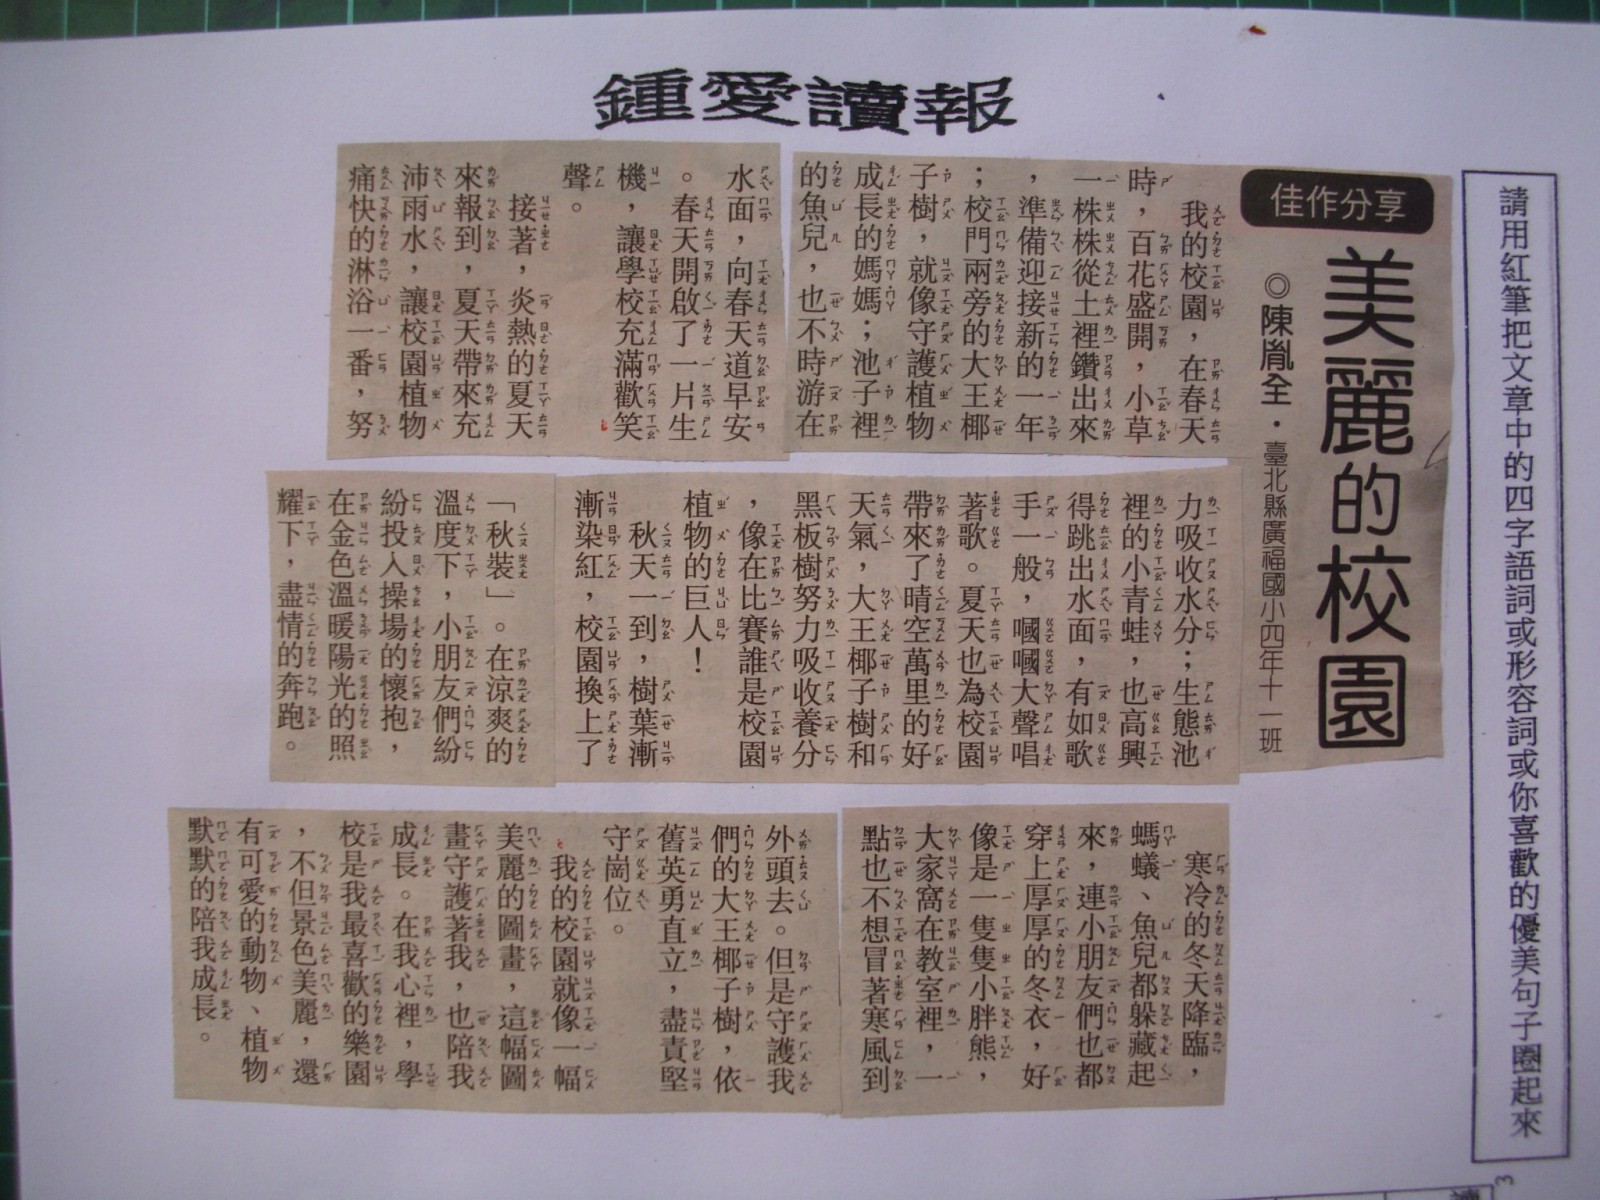 鍾愛讀報
請用紅筆把文章中的四字語詞或形容詞或你喜歡的優美句子圈起來
佳作分享
美麗的校園
◎陳胤全・臺北縣廣福國小四年十一班
我的校園,在春天
時,百花盛開,小草
一株株從土裡鑽出來
,準備迎接新的一年
;校門兩旁的大王椰
子樹,就像守護植物
成長的媽媽;池子裡
的魚兒,也不時游在
水面,向春天道早安
。春天開啟了一片生
機,讓學校充滿歡笑
聲。
接著,炎熱的夏天
來報到,夏天帶來充
沛雨水,讓校園植物
痛快的淋浴一番,努
力吸收水分;生態池
裡的小青蛙,也高興
得跳出水面,有如歌
手一般,嘓嘓大聲唱
著歌。夏天也為校園
帶來了晴空萬里的好
天氣,大王椰子樹和
黑板樹努力吸收養分
,像在比賽誰是校園
植物的巨人!
秋天一到,樹葉漸
漸染紅,校園換上了
「秋裝」。在涼爽的
溫度下,小朋友們紛
紛投入操場的懷抱,
在金色溫暖陽光的照
耀下,盡情的奔跑。
寒冷的冬天降臨,
螞蟻、魚兒都躲藏起
來,連小朋友們也都
穿上厚厚的冬衣,好
像是一隻隻小胖熊,
大家窩在教室裡,一
點也不想冒著寒風到
外頭去。但是守護我
們的大王椰子樹,依
舊英勇直立,盡責堅
守崗位。
我的校園就像一幅
美麗的圖畫,這幅圖
畫守護著我,也陪我
成長。在我心裡,學
校是我最喜歡的樂園
,不但景色美麗,還
有可愛的動物、植物
默默的陪我成長。
3